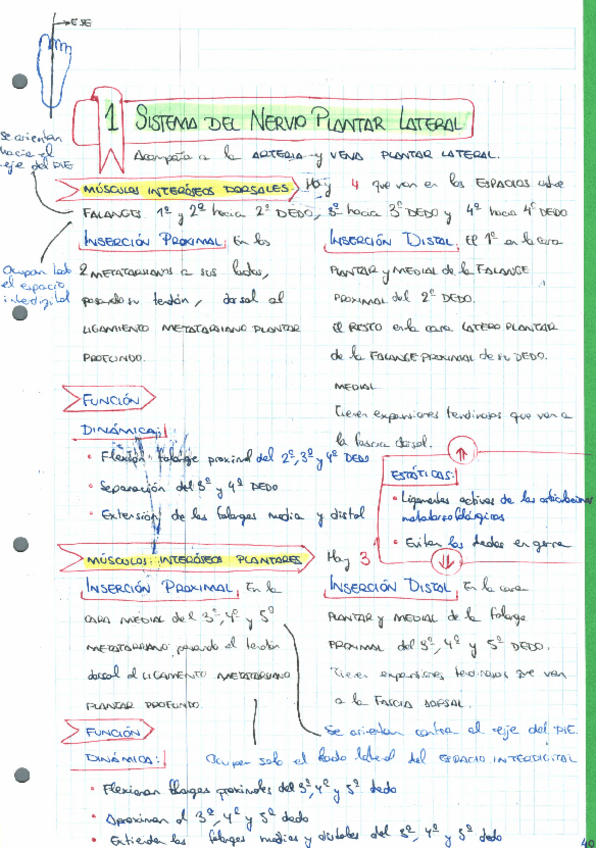 EJE
1 SISTEMA DEL NERVIO PLANTAR LATERAL
Acompaña a la ARTERIA y VENA PLANTAR LATERAL.
Se orientan
hacia el
eje del PIE
MÚSCULOS INTERÓSEOS DORSALES. Hay 4 que van en los ESPACIOS entre
FALANGES. 1º y 2º hacia 2º DEDO, 3º hacia 3º DEDO y 4º hacia 4º DEDO
Ocupan todo
el espacio
interdigital
INSERCIÓN PROXIMAL. En los
2 METATARSIANOS a sus lados,
pasando su tendón, dorsal al
LIGAMENTO METATARSIANO PLANTAR
PROFUNDO.
INSERCIÓN DISTAL. El 1º en la cara
PLANTAR y MEDIAL de la FALANGE
PROXIMAL del 2º DEDO.
El RESTO en la cara LATERO PLANTAR
de la FALANGE PROXIMAL de su DEDO.
MEDIAL
Tienen expansiones tendinosas que van a
la fascia dorsal.
FUNCIÓN
DINÁMICA:
• Flexión falange proximal del 2º, 3º y 4º DEDO
• Separación del 3º y 4º DEDO
• Extensión de las falanges media y distal
ESTÁTICAS:
• Ligamentos activos de las articulaciones
metatarsofalángicas
• Evitan los dedos en garra
MÚSCULOS INTERÓSEOS PLANTARES Hay 3
INSERCIÓN PROXIMAL. En la
CARA MEDIAL del 3º, 4º y 5º
METATARSIANO, pasando el tendón
dorsal al LIGAMENTO METATARSIANO
PLANTAR PROFUNDO.
INSERCIÓN DISTAL. En la cara
PLANTAR y MEDIAL de la falange
PROXIMAL del 3º, 4º y 5º DEDO.
Tienen expansiones tendinosas que van
a la FASCIA DORSAL.
Se orientan contra el eje del PIE.
FUNCIÓN
DINÁMICA: Ocupan solo el lado lateral del ESPACIO INTERDIGITAL
• Flexionan falanges proximales del 3º, 4º y 5º dedo
• Aproximan el 3º, 4º y 5º dedo
• Extienden las falanges medias y distales del 3º, 4º y 5º dedo
40